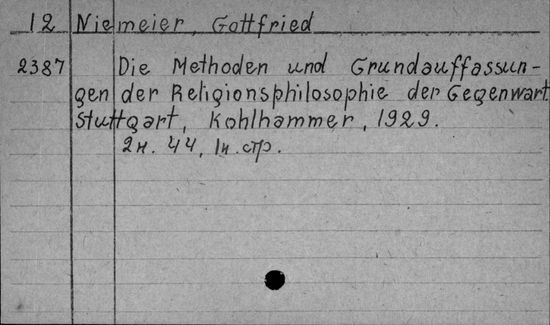 12 Niemeier, Gottfried
2387 Die Methoden und Grundauffassun-
gen der Religionsphilosophie der Gegenwart.
Stuttgart, Kohlhammer, 1929.
2н. 44, 1н. стр.